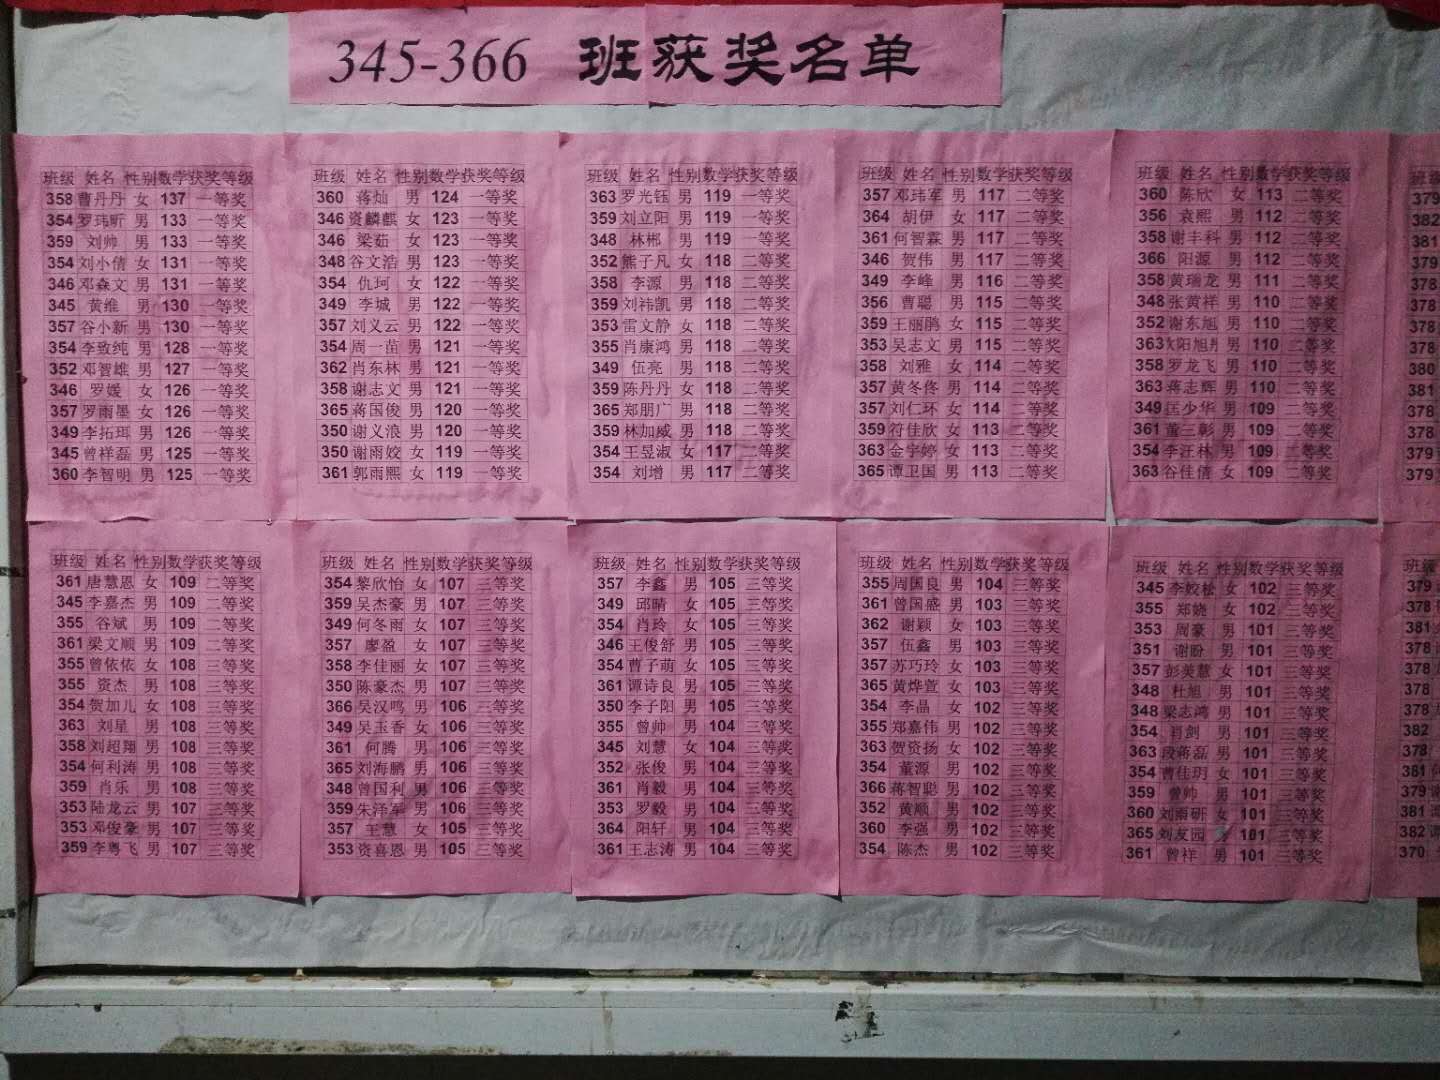 345-366 班获奖名单
班级 姓名 性别 数学 获奖等级
358 曹丹丹 女 137 一等奖
354 罗玮昕 男 133 一等奖
359 刘帅 男 133 一等奖
354 刘小倩 女 131 一等奖
346 邓森文 男 131 一等奖
345 黄维 男 130 一等奖
357 谷小新 男 130 一等奖
354 李致纯 男 128 一等奖
352 邓智雄 男 127 一等奖
346 罗媛 女 126 一等奖
357 罗雨墨 女 126 一等奖
349 李拓珥 男 126 一等奖
345 曾祥磊 男 125 一等奖
360 李智明 男 125 一等奖
班级 姓名 性别 数学 获奖等级
360 蒋灿 男 124 一等奖
346 资麟麒 女 123 一等奖
346 梁茹 女 123 一等奖
348 谷文浩 男 123 一等奖
354 仇珂 女 122 一等奖
349 李城 男 122 一等奖
357 刘义云 男 122 一等奖
354 周一苗 男 121 一等奖
362 肖东林 男 121 一等奖
358 谢志文 男 121 一等奖
365 蒋国俊 男 120 一等奖
350 谢义浪 男 120 一等奖
350 谢雨姣 女 119 一等奖
361 郭雨熙 女 119 一等奖
班级 姓名 性别 数学 获奖等级
363 罗光钰 男 119 一等奖
359 刘立阳 男 119 一等奖
348 林郴 男 119 一等奖
352 熊子凡 女 118 二等奖
358 李源 男 118 二等奖
359 刘祎凯 男 118 二等奖
353 雷文静 女 118 二等奖
355 肖康鸿 男 118 二等奖
349 伍亮 男 118 二等奖
359 陈丹丹 女 118 二等奖
365 郑朋广 男 118 二等奖
359 林加威 男 118 二等奖
354 王昱淑 女 117 二等奖
354 刘增 男 117 二等奖
班级 姓名 性别 数学 获奖等级
357 邓玮军 男 117 二等奖
364 胡伊 女 117 二等奖
361 何智霖 男 117 二等奖
346 贺伟 男 117 二等奖
349 李峰 男 116 二等奖
356 曹聪 男 115 二等奖
359 王丽鹃 女 115 二等奖
353 吴志文 男 115 二等奖
358 刘雅 女 114 二等奖
357 黄冬佟 男 114 二等奖
357 刘仁环 女 114 二等奖
359 符佳欣 女 113 二等奖
363 金宇婷 女 113 二等奖
365 谭卫国 男 113 二等奖
班级 姓名 性别 数学 获奖等级
360 陈欣 女 113 二等奖
356 袁熙 男 112 二等奖
358 谢丰科 男 112 二等奖
366 阳源 男 112 二等奖
358 黄瑞龙 男 111 二等奖
348 张黄祥 男 110 二等奖
352 谢东旭 男 110 二等奖
363 阳旭 男 110 二等奖
358 罗龙飞 男 110 二等奖
363 蒋志辉 男 110 二等奖
349 匡少华 男 109 二等奖
361 董三彰 男 109 二等奖
354 李汪林 男 109 二等奖
363 谷佳倩 女 109 二等奖
379
382
381
379
378
378
378
378
380
381
378
378
379
379
班级 姓名 性别 数学 获奖等级
361 唐慧恩 女 109 二等奖
345 李嘉杰 男 109 二等奖
355 谷斌 男 109 二等奖
361 梁文顺 男 109 二等奖
355 曾依依 女 108 三等奖
355 资杰 男 108 三等奖
354 贺加儿 女 108 三等奖
363 刘星 男 108 三等奖
358 刘超翔 男 108 三等奖
354 何利涛 男 108 三等奖
359 肖乐 男 108 三等奖
353 陆龙云 男 107 三等奖
353 邓俊豪 男 107 三等奖
359 李粤飞 男 107 三等奖
班级 姓名 性别 数学 获奖等级
354 黎欣怡 女 107 三等奖
359 吴杰豪 男 107 三等奖
349 何冬雨 女 107 三等奖
357 廖盈 女 107 三等奖
358 李佳丽 女 107 三等奖
350 陈豪杰 男 107 三等奖
366 吴汉鸣 男 106 三等奖
349 吴玉香 女 106 三等奖
361 何腾 男 106 三等奖
365 刘海鹏 男 106 三等奖
348 曾国利 男 106 三等奖
359 朱泽军 男 106 三等奖
357 王慧 女 105 三等奖
353 资喜恩 男 105 三等奖
班级 姓名 性别 数学 获奖等级
357 李鑫 男 105 三等奖
349 邱晴 女 105 三等奖
354 肖玲 女 105 三等奖
346 王俊舒 男 105 三等奖
354 曹子萌 女 105 三等奖
361 谭诗良 男 105 三等奖
350 李子阳 男 105 三等奖
355 曾帅 男 104 三等奖
345 刘慧 女 104 三等奖
352 张俊 男 104 三等奖
361 肖毅 男 104 三等奖
353 罗毅 男 104 三等奖
364 阳轩 男 104 三等奖
361 王志涛 男 104 三等奖
班级 姓名 性别 数学 获奖等级
355 周国良 男 104 三等奖
361 曾国盛 男 103 三等奖
362 谢颖 女 103 三等奖
357 伍鑫 男 103 三等奖
357 苏巧玲 女 103 三等奖
365 黄烨萱 女 103 三等奖
354 李晶 女 102 三等奖
355 郑嘉伟 男 102 三等奖
363 贺资扬 女 102 三等奖
354 董源 男 102 三等奖
366 蒋智聪 男 102 三等奖
352 黄顺 男 102 三等奖
360 李强 男 102 三等奖
354 陈杰 男 102 三等奖
班级 姓名 性别 数学 获奖等级
345 李姣松 女 102 三等奖
355 郑娆 女 102 三等奖
353 周豪 男 101 三等奖
351 谢盼 男 101 三等奖
357 彭美慧 女 101 三等奖
348 杜旭 男 101 三等奖
348 梁志鸿 男 101 三等奖
354 肖剑 男 101 三等奖
363 段蒋磊 男 101 三等奖
354 曹佳玥 女 101 三等奖
359 曾帅 男 101 三等奖
360 刘雨研 女 101 三等奖
365 刘友园 101 三等奖
361 曾祥 男 101 三等奖
班级
379
378
381
378
378
378
378
382
378
381
379
381
382
370